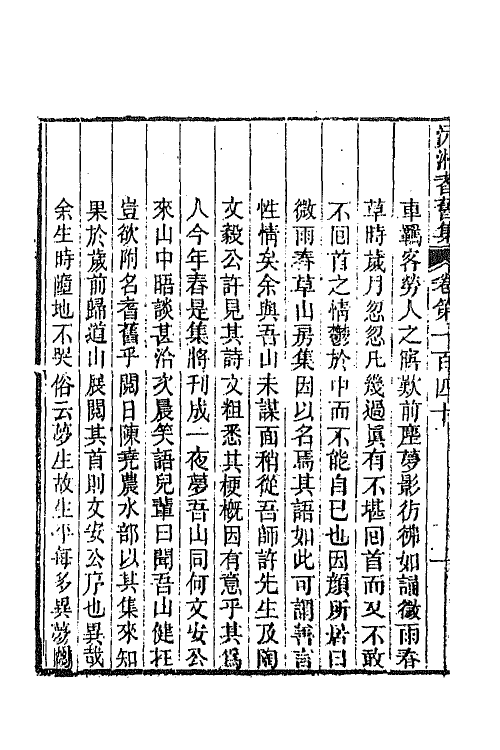 沅湘耆舊集 卷第一百四十 一
車羈客勞人之寤歎前塵夢影彷彿如誦微雨春
草時歲月忽忽凡幾過眞有不堪回首而又不敢
不回首之情鬱於中而不能自已也因顏所居曰
微雨春草山房集因以名焉其語如此可謂善言
性情矣余與吾山未謀面稍從吾師許先生及陶
文毅公許見其詩文粗悉其梗概因有意乎其爲
人今年春是集將刊成一夜夢吾山同何文安公
來山中晤談甚洽次晨笑語兒輩曰聞吾山健在
豈欲附名耆舊乎閱日陳堯農水部以其集來知
果於歲前歸道山展閱其首則文安公序也異哉
余生時隨地不哭俗云夢生故生平每多異夢